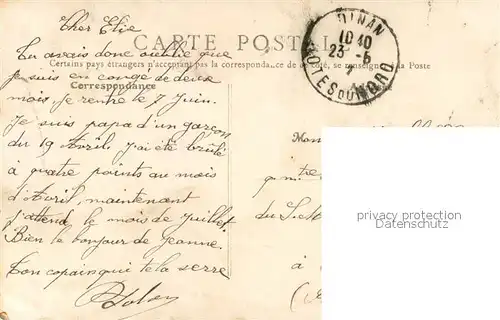 Cher Elie
CARTE POSTALE
Tu avais donc oublié que
Certains pays étrangers n'acceptant pas la correspondance de ce côté, se renseigner à la Poste
je suis en congé de deux
Correspondance
mois, je rentre le 7 Juin.
Je suis papa d'un garçon
du 19 Avril. J'ai été brûlé
à quatre points au mois
d'Avril, maintenant
j'attend le mois de Juillet.
Bien le bonjour de Jeanne.
Ton copain qui te la serre
DINAN
10 40
23 -5
COTES DU NORD
Mon
du S.
à
privacy protection
Datenschutz